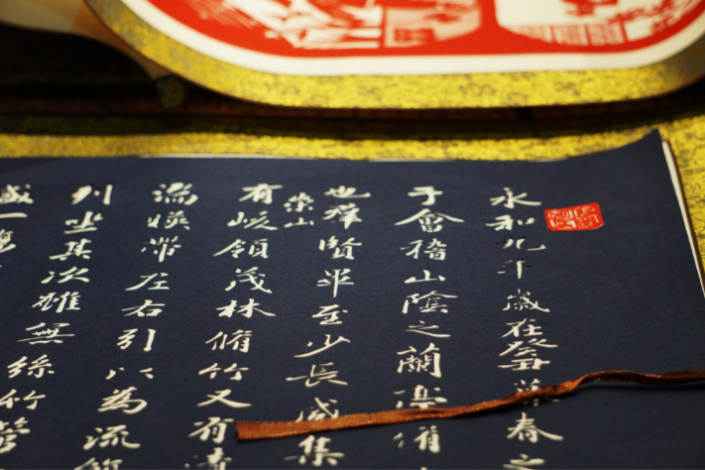 永和九年歲在癸丑暮春之
于會稽山陰之蘭亭脩
也群賢畢至少長咸集
崇山
有峻領茂林脩竹又有清
湍暎帶左右引以為流
列坐其次雖無絲竹管
盛一觴